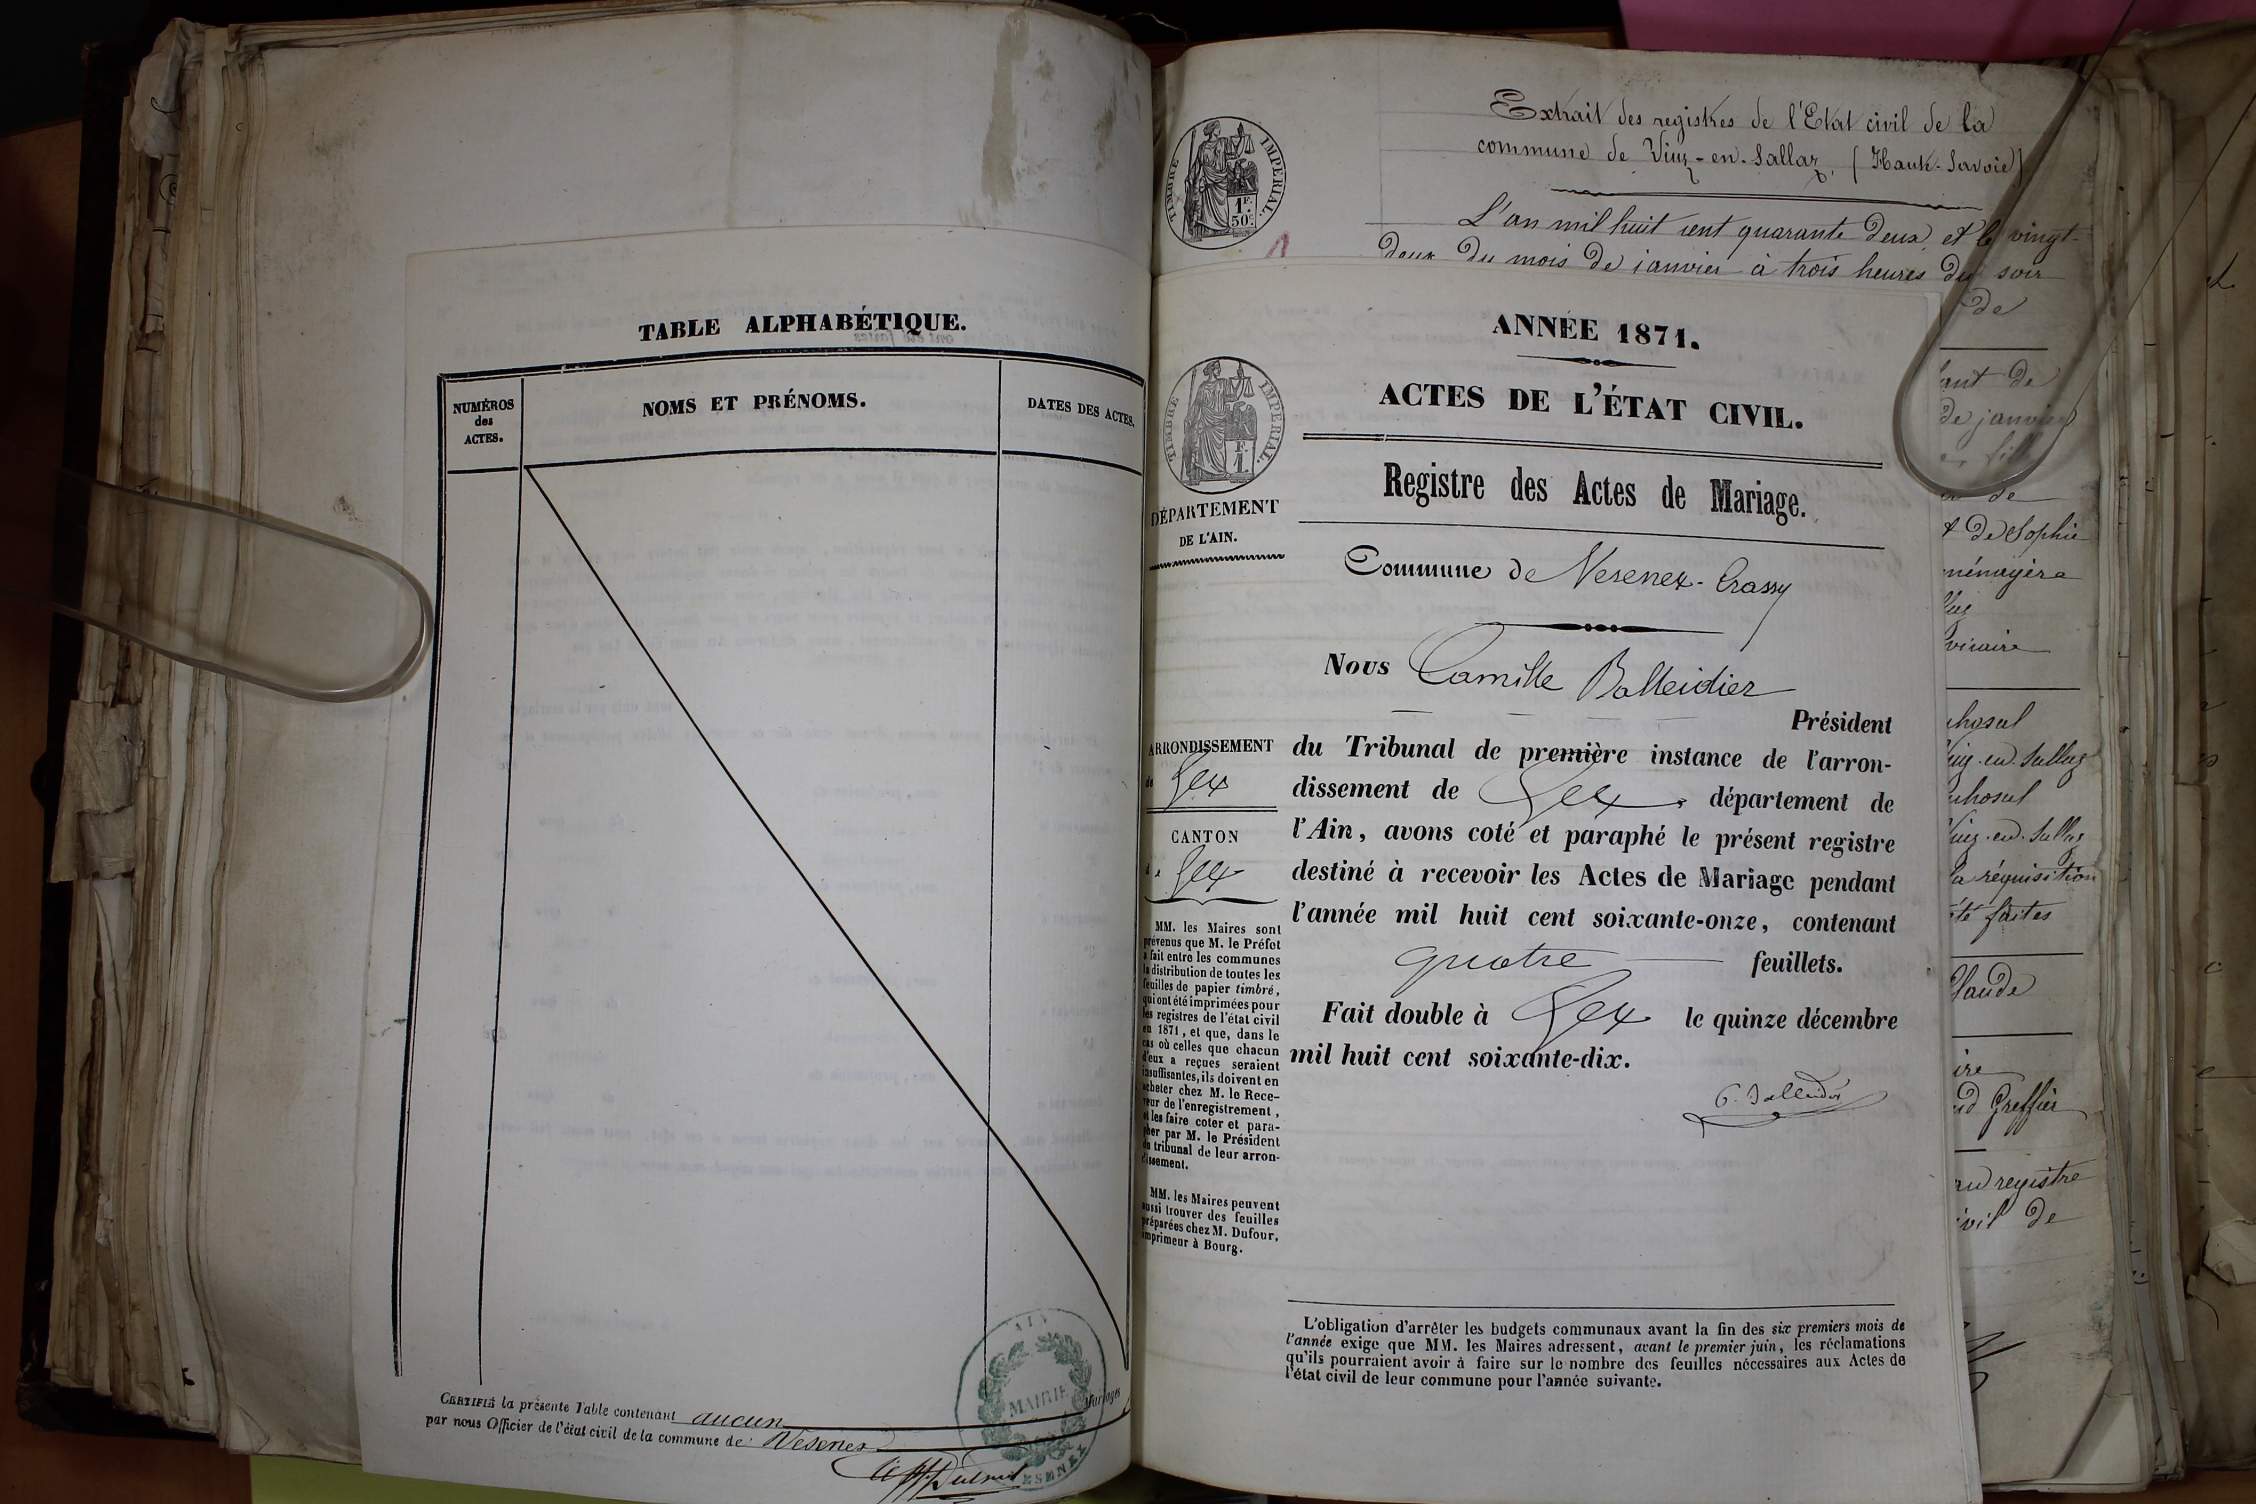 TABLE ALPHABÉTIQUE.
NUMÉROS
des
ACTES.
NOMS ET PRÉNOMS.
DATES DES ACTES.
CERTIFIÉ la présente Table contenant aucun Mariages
par nous Officier de l'état civil de la commune de Vesenex
MAIRIE
VESENEX
AIN
Extrait des registres de l'Etat civil de la
commune de Viuz-en-Sallaz, (Haute-Savoie)
L'an mil huit cent quarante deux, et le vingt-
deux du mois de janvier à trois heures du soir
de
TIMBRE IMPERIAL.
1F.
50c.
ANNÉE 1871.
ACTES DE L'ÉTAT CIVIL.
Registre des Actes de Mariage.
Commune de Vesenex-Crassy
TIMBRE IMPERIAL.
F.
1.
DÉPARTEMENT
DE L'AIN.
ARRONDISSEMENT
de Gex
CANTON
de Gex
MM. les Maires sont
prévenus que M. le Préfet
a fait entre les communes
la distribution de toutes les
feuilles de papier timbré,
qui ont été imprimées pour
les registres de l'état civil
en 1871, et que, dans le
cas où celles que chacun
d'eux a reçues seraient
insuffisantes, ils doivent en
acheter chez M. le Rece-
veur de l'enregistrement,
et les faire coter et para-
pher par M. le Président
du tribunal de leur arron-
dissement.
MM. les Maires peuvent
aussi trouver des feuilles
préparées chez M. Dufour,
imprimeur à Bourg.
Nous Camille Balleidier
Président
du Tribunal de première instance de l'arron-
dissement de Gex, département de
l'Ain, avons coté et paraphé le présent registre
destiné à recevoir les Actes de Mariage pendant
l'année mil huit cent soixante-onze, contenant
quatre feuillets.
Fait double à Gex le quinze décembre
mil huit cent soixante-dix.
C. Balleidier
L'obligation d'arrêter les budgets communaux avant la fin des six premiers mois de
l'année exige que MM. les Maires adressent, avant le premier juin, les réclamations
qu'ils pourraient avoir à faire sur le nombre des feuilles nécessaires aux Actes de
l'état civil de leur commune pour l'année suivante.
de janvier
de
de Sophie
ménagère
vicaire
en-Sallaz
en-Sallaz
la réquisition
été faites
Claude
Greffier
au registre
civil de